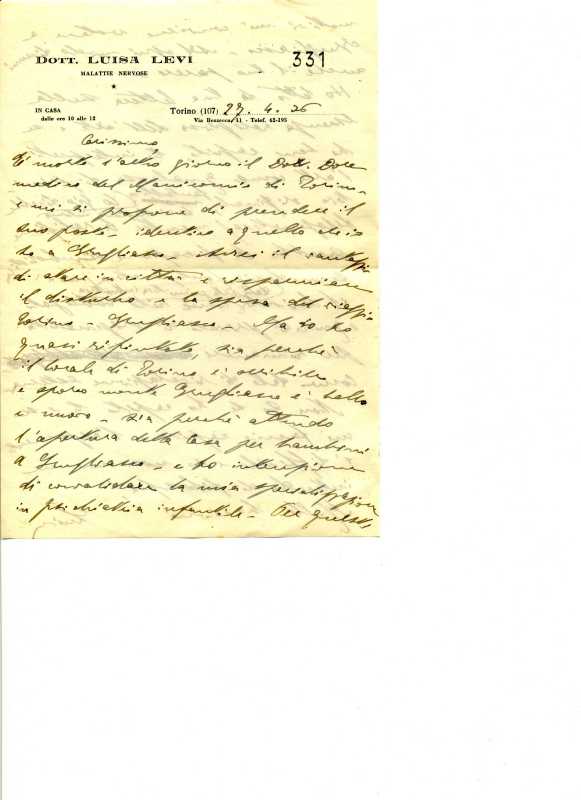 DOTT. LUISA LEVI
331
MALATTIE NERVOSE
IN CASA
dalle ore 10 alle 12
Torino (107) 27. 4. 36
Via Bezzecca, 11 - Telef. 62-195
Carissimo,
È morto l'altro giorno il Dott. Dore
medico del Manicomio di Torino -
e mi si propone di prendere il
suo posto - identico a quello che io
ho a Grugliasco - Avrei il vantaggio
di stare in città e risparmiare
il disturbo e la spesa del viaggio
Torino - Grugliasco - Ma io ho
quasi rifiutato, sia perchè
il locale di Torino è orribile
e sporco mentre Grugliasco è bello
e nuovo - sia perchè attendo
l'apertura della Casa per bambini
a Grugliasco - e ho intenzione
di consolidare la mia specializzazione
in psichiatria infantile - Per questo,